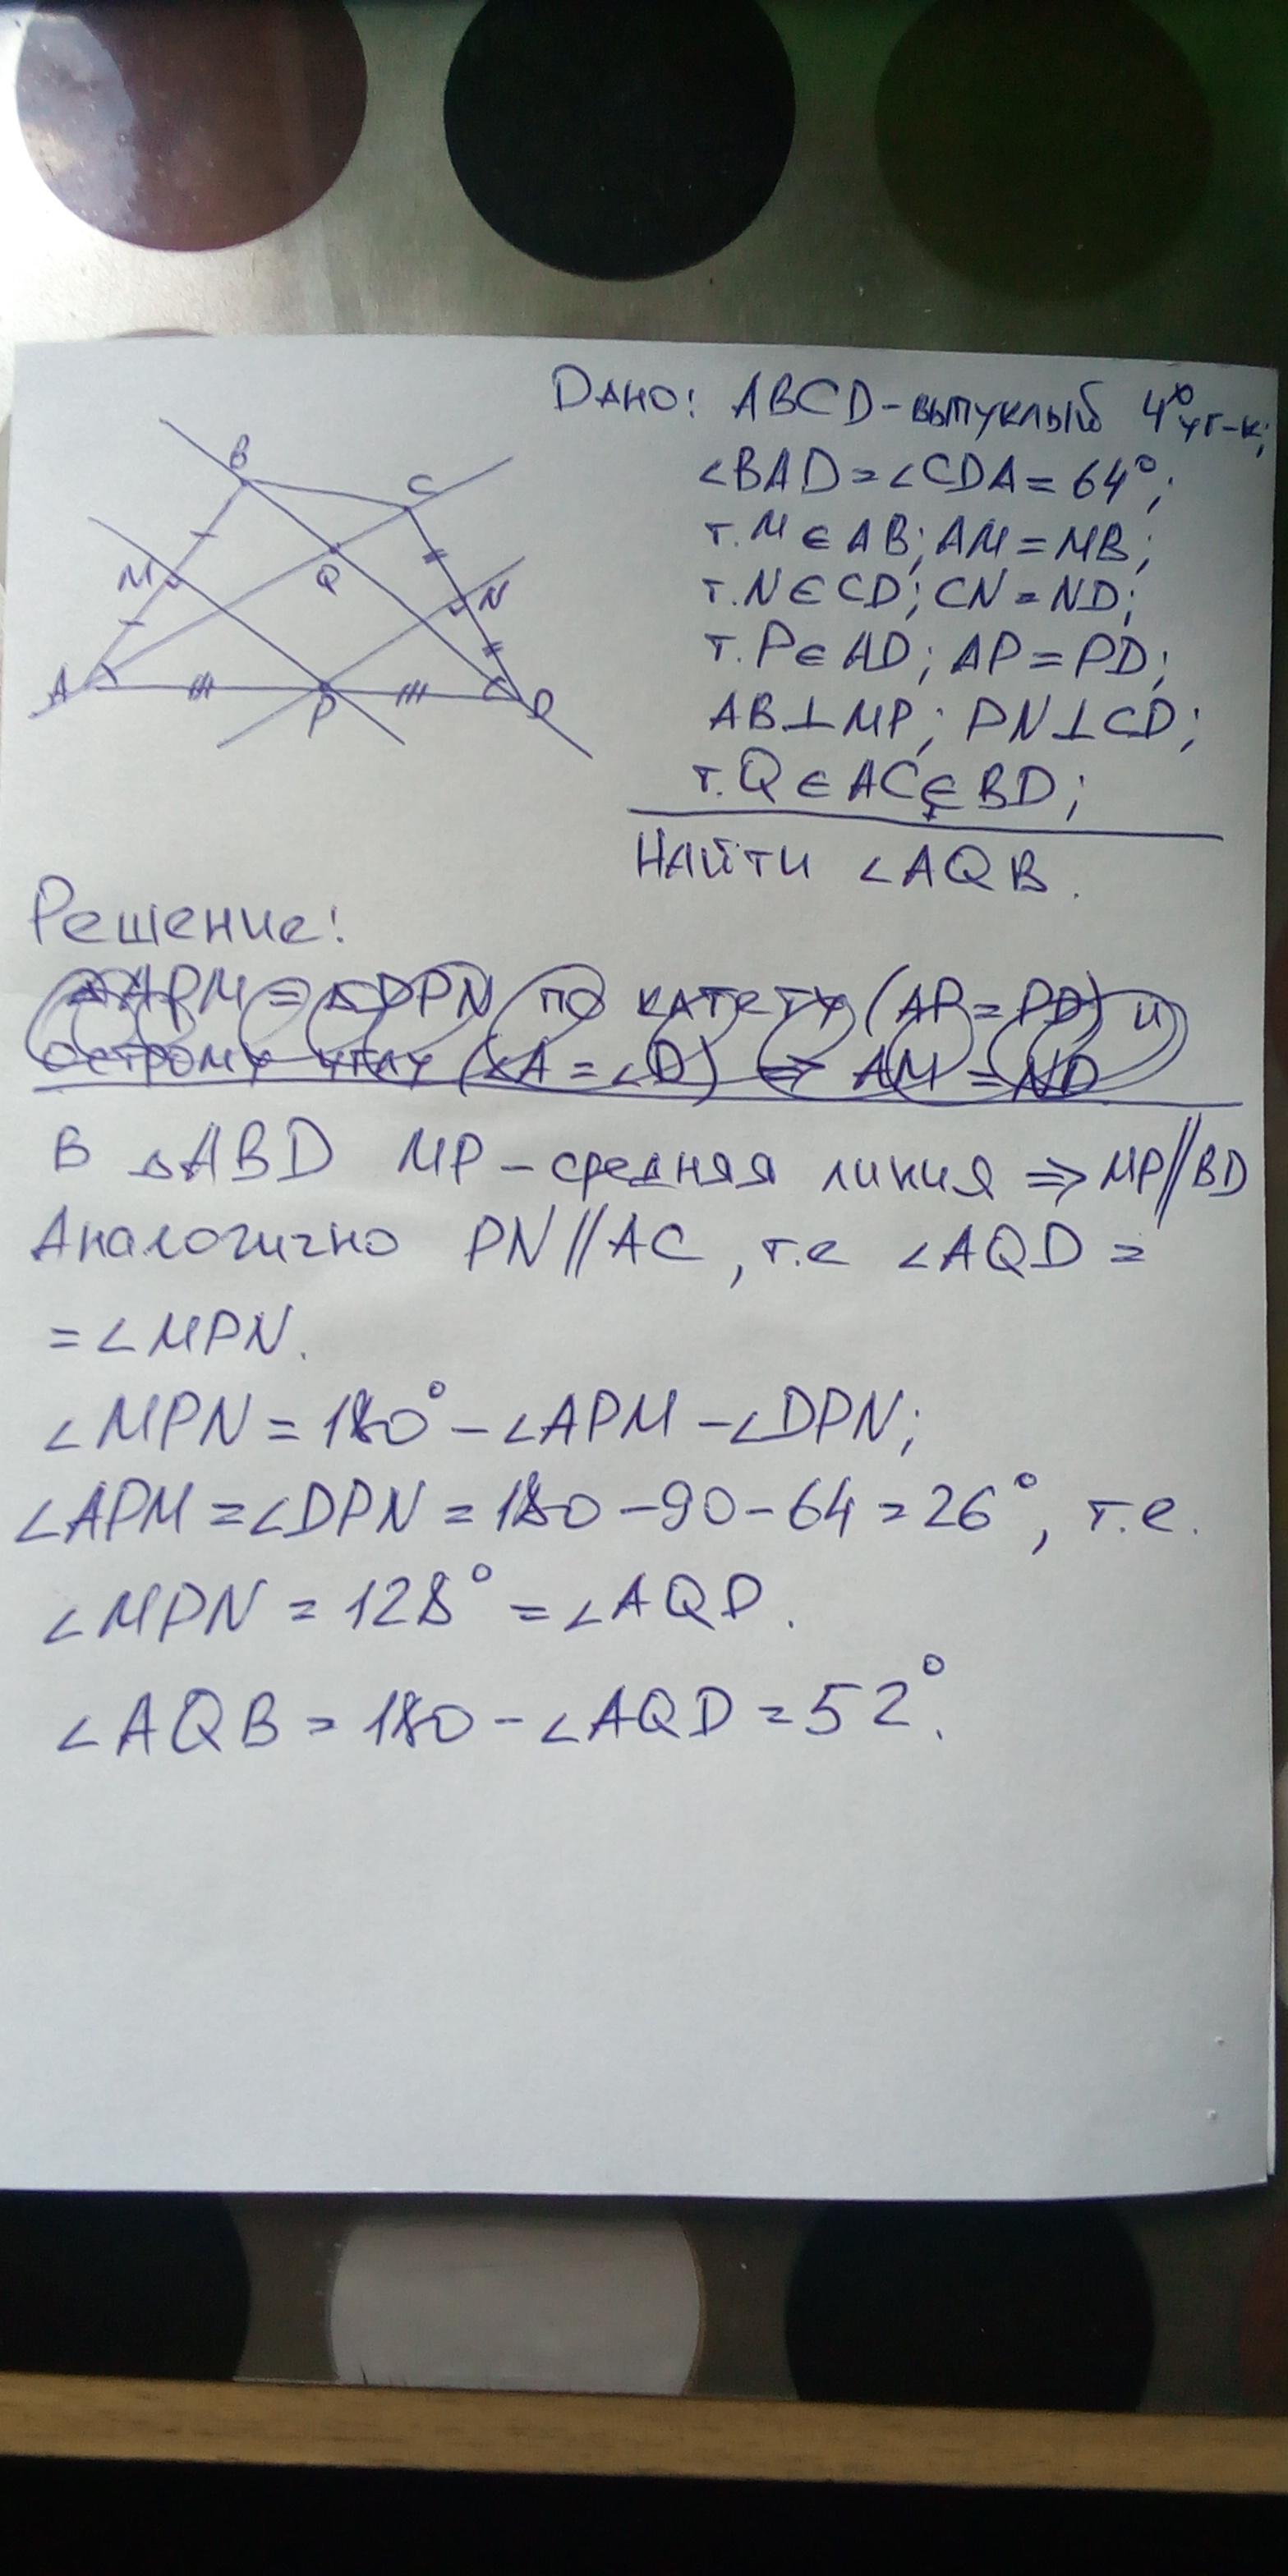 B
C
M
Q
N
A
P
D
Дано: ABCD-выпуклый 4°уг-к;
∠BAD=∠CDA=64°;
т.M∈AB; AM=MB;
т.N∈CD; CN=ND;
т.P∈AD; AP=PD;
AB⊥MP; PN⊥CD;
т.Q∈AC∈BD;
Найти ∠AQB.
Решение:
△APM=△DPN по катету (AP=PD) и
острому углу (∠A=∠D) ⇒ AM=ND
В △ABD MP-средняя линия ⇒ MP∥BD
Аналогично PN∥AC, т.е ∠AQD=
=∠MPN.
∠MPN=180°-∠APM-∠DPN;
∠APM=∠DPN=180-90-64=26°, т.е.
∠MPN=128°=∠AQD.
∠AQB=180-∠AQD=52°.